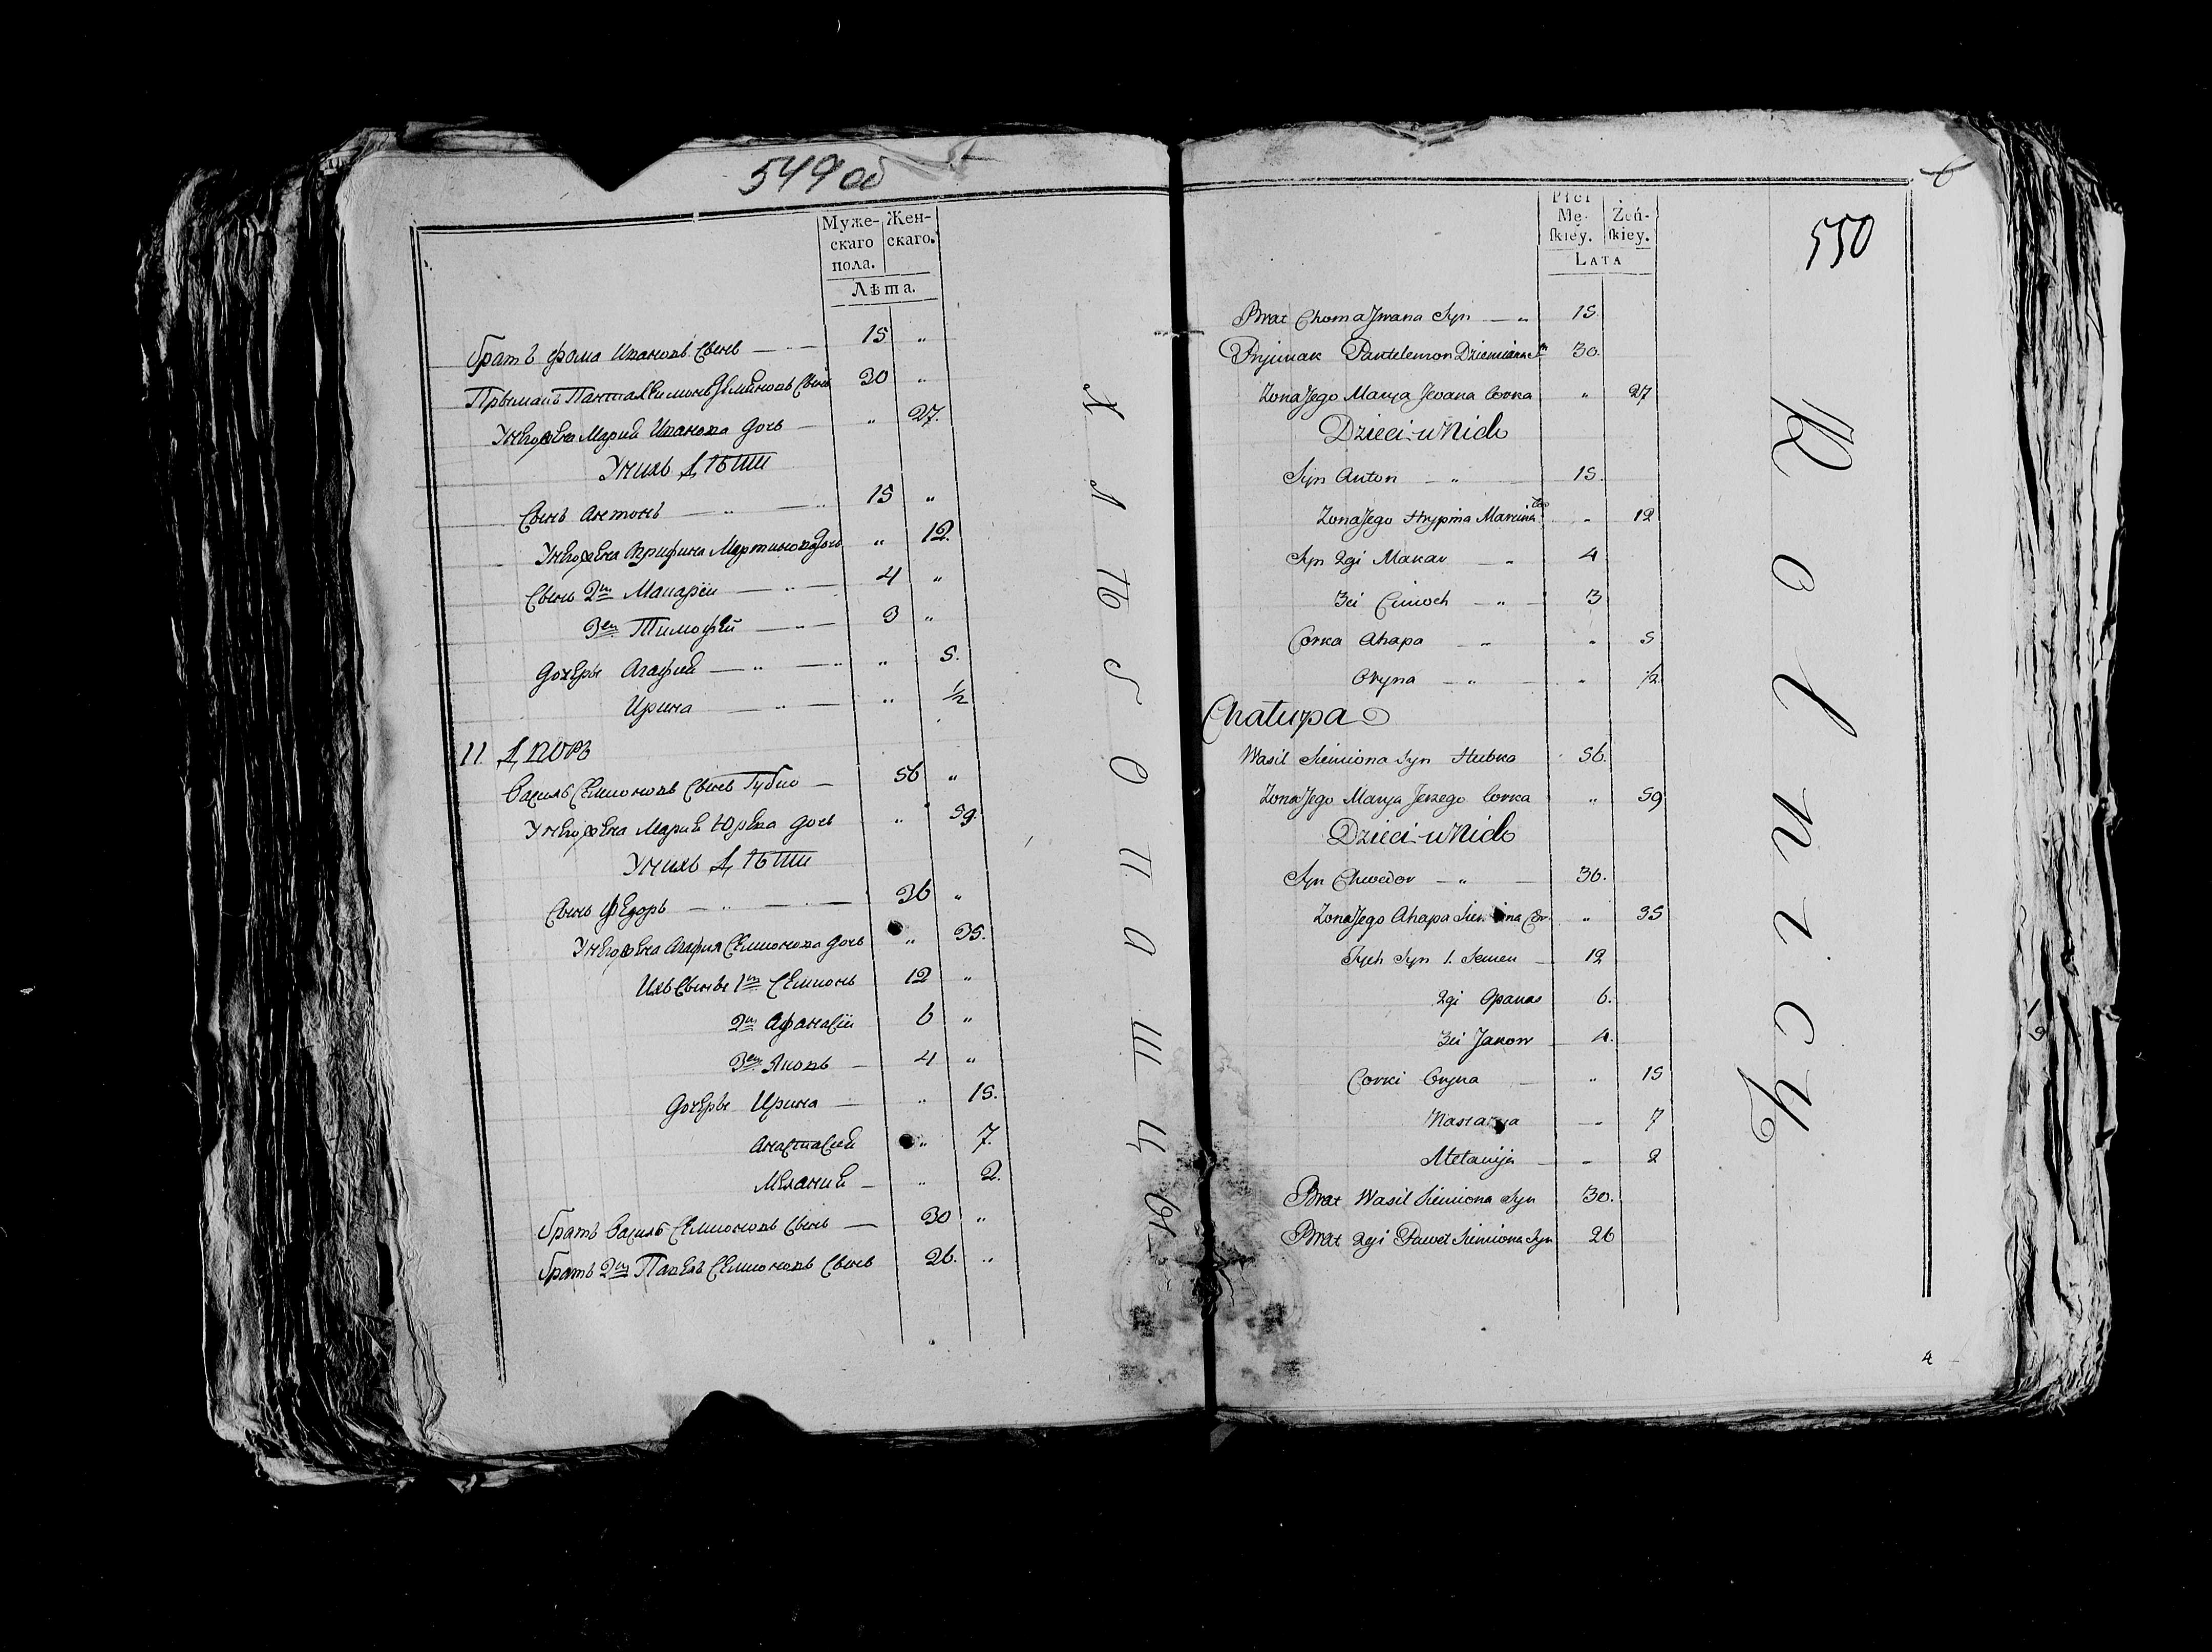 549 об
Муже- Жен-
скаго скаго.
пола.
Лѣта.
братъ Фома Ивановъ сынъ — 15 "
Прымакъ Панталеимонъ Деминовъ сынъ 30 "
У него жена Марий Иванова дочь — " 27.
У нихъ Дѣти
Сынъ Антонъ — " — 15 "
У него жена Агрифина Мартинова дочь " 12.
Сынъ 2й Макарiй — " — 4 "
3ей Тимофѣй — " — 3 "
дочери Агафий — " — " 5.
Ирина — " — " 1/2
11 Дворъ
Василь Семионовъ сынъ Губко — 56 "
У него жена Марий Юрева дочь " 59.
У нихъ Дѣти
Сынъ Федоръ — " — 36 "
У него жена Агафия Семионова дочь " 35.
Ихъ сыновьи 1й Семионъ 12 "
2й Афанасiй 6 "
3ей Яковъ — 4 "
дочери Ирина — " 15.
Анастасий " 7.
Меланий — " 2.
братъ Василь Семионовъ сынъ — 30 "
братъ 2й Павелъ Семионовъ сынъ 26. "
Хлѣбопашцы
550
Płci
Mę- Żeń-
skiey. skiey.
LATA
Brat Choma Jwana Syn — " 15.
Pryimak Pantelemon Dziemiana Sn 30.
Zona Jego Marya Jwana Corka " 27
Dzieci u Nich
Syn Anton — " — 15.
Zona Jego Hrypina Marcina Cor " 12
Syn 2gi Makar — " 4
3ci Cimoch — " — 3
Corka Ahapa — " " 5
Oryna — " — " 1/2
Chatupa
Wasil Siemiona Syn Hubko 56.
Zona Jego Marya Jerzego Corka " 59
Dzieci u Nich
Syn Chwedor — " — 36.
Zona Jego Ahapa Siemiona Cor " 35
Jych Syn 1. Semen — 12
2gi Opanas 6.
3ci Jakow — 4.
Corki Oryna — " 15
Nastazya — " 7
Metanija — " 2
Brat Wasil Siemiona Syn 30.
Brat 2gi Pawel Siemiona Syn 26
Rolnicy
4